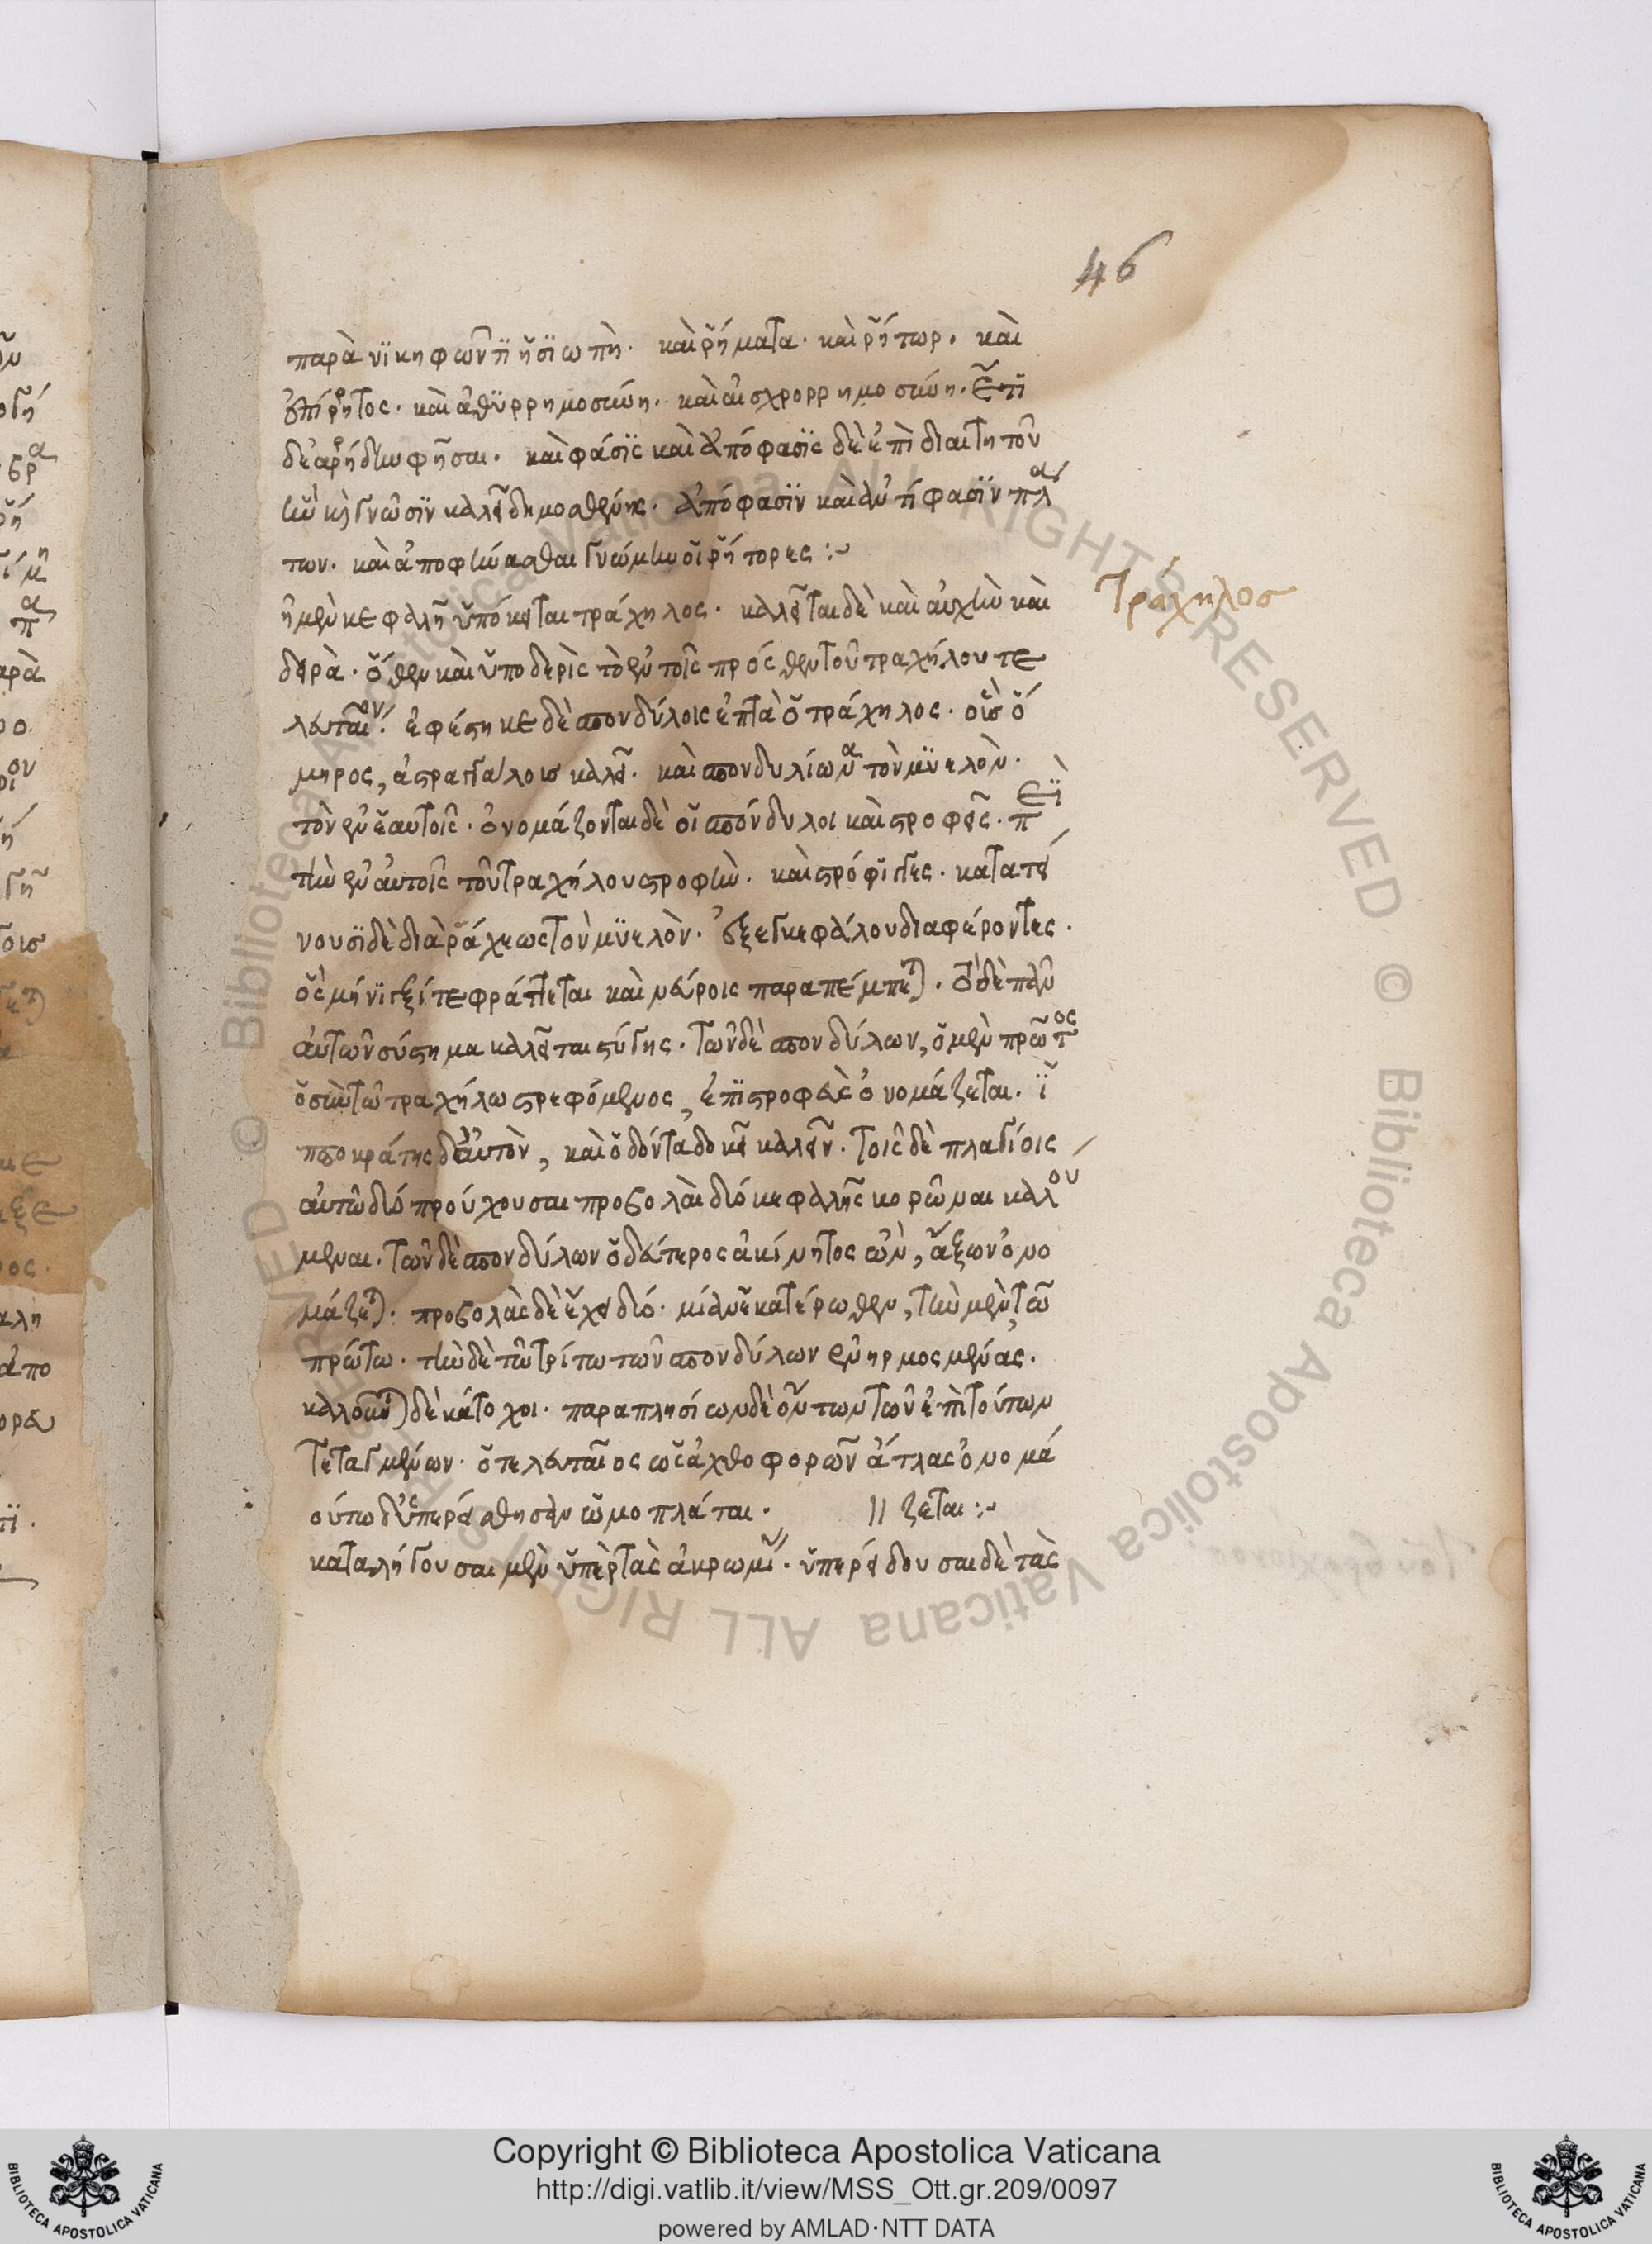 46
παρὰ νϊκηφῶντϊ ἡ σϊωπὴ. καὶ ῥήματα. καὶ ῥήτωρ. καὶ
ἐπίρρητος. καὶ ἀθϋρρημοσύνη. καὶ αἰσχρορρημοσύνη. ἔστϊ
φῆσαι. καὶ φάσϊς καὶ ἀπόφασϊς δὲ ἐπὶ διαιτητοῦ
ἣν κὴ γνῶσϊν καλεῖ δημοσθένης. ἀπόφασϊν καὶ ἀντίφασϊν πλά
των. καὶ ἀποφήνασθαι γνώμην οἱ ῥήτορες :~
Τράχηλος
ἡ μὲν κεφαλῆ ὑπόκειται τράχηλος. καλεῖται δὲ καὶ αὐχὴν καὶ
δειρὰ. ὅθεν καὶ ὑποδερὶς τὸ ἐν τοῖς πρόσθεν τοῦ τραχήλου τε
λευταῖον. ἐφέστηκε δὲ σπονδύλοις ἑπτὰ ὁ τράχηλος. οὓς ὅ
μηρος, ἀστραγάλοισ καλεῖ. καὶ σπονδυλίων τὸν μϋελὸν.
τὸν ἐν ἑαυτοῖς. ὀνομάζονται δὲ οἱ σπόνδυλοι καὶ στροφεῖς.
τὴν ἐν αὐτοῖς τοῦ τραχήλου στροφὴν. καὶ στρόφιγγες. κατατεί
νουσϊ δὲ διὰ ῥάχεως τὸν μϋελὸν. ἐξ ἐγκεφάλου διαφέροντες.
ὃς μήνιγξί τε φράττεται καὶ νεύροις παραπέμπεται. τὸ δὲ πᾶν
αὐτῶν σύστημα καλεῖται στύγης. τῶν δὲ σπονδύλων, ὁ μὲν πρῶτος
ὁ σὺν τῷ τραχήλω στρεφόμενος, ἐπϊστροφεὺς ὀνομάζεται. ἵ
πποκράτης δὲ αὐτὸν, καὶ ὀδόντα δοκεῖ καλεῖν. τοῖς δὲ πλαγίοις
αὐτῶ δύο προύχουσαι προβολαὶ δύο κεφαλῆς κορῶναι καλού
μεναι. τῶν δὲ σπονδύλων ὁ δεύτερος ἀκίνητος ὢν, ἄξων ὀνο
μάζεται. προβολὰς δὲ ἔχει δύο. μίαν ἑκατέρωθεν, τὴν μὲν τῶ
πρώτω. τὴν δὲ τῶ τρίτω τῶν σπονδύλων ἐνηρμοσμένας.
καλοῦνται δὲ κάτοχοι. παραπλησίων δὲ ὄντων τῶν ἐπὶ τούτων
τεταγμένων. ὁ τελευταῖος ὡς ἀχθοφορῶν ἄτλας ὀνομά
ζεται :~
οὕτω δ' ὑπερείσθησαν ὠμοπλάται.
καταλήγουσαι μὲν ὑπὲρ τὰς ἀκρωμί. ὑπερείδουσαι δὲ τὰς
Copyright © Biblioteca Apostolica Vaticana
http://digi.vatlib.it/view/MSS_Ott.gr.209/0097
powered by AMLAD·NTT DATA